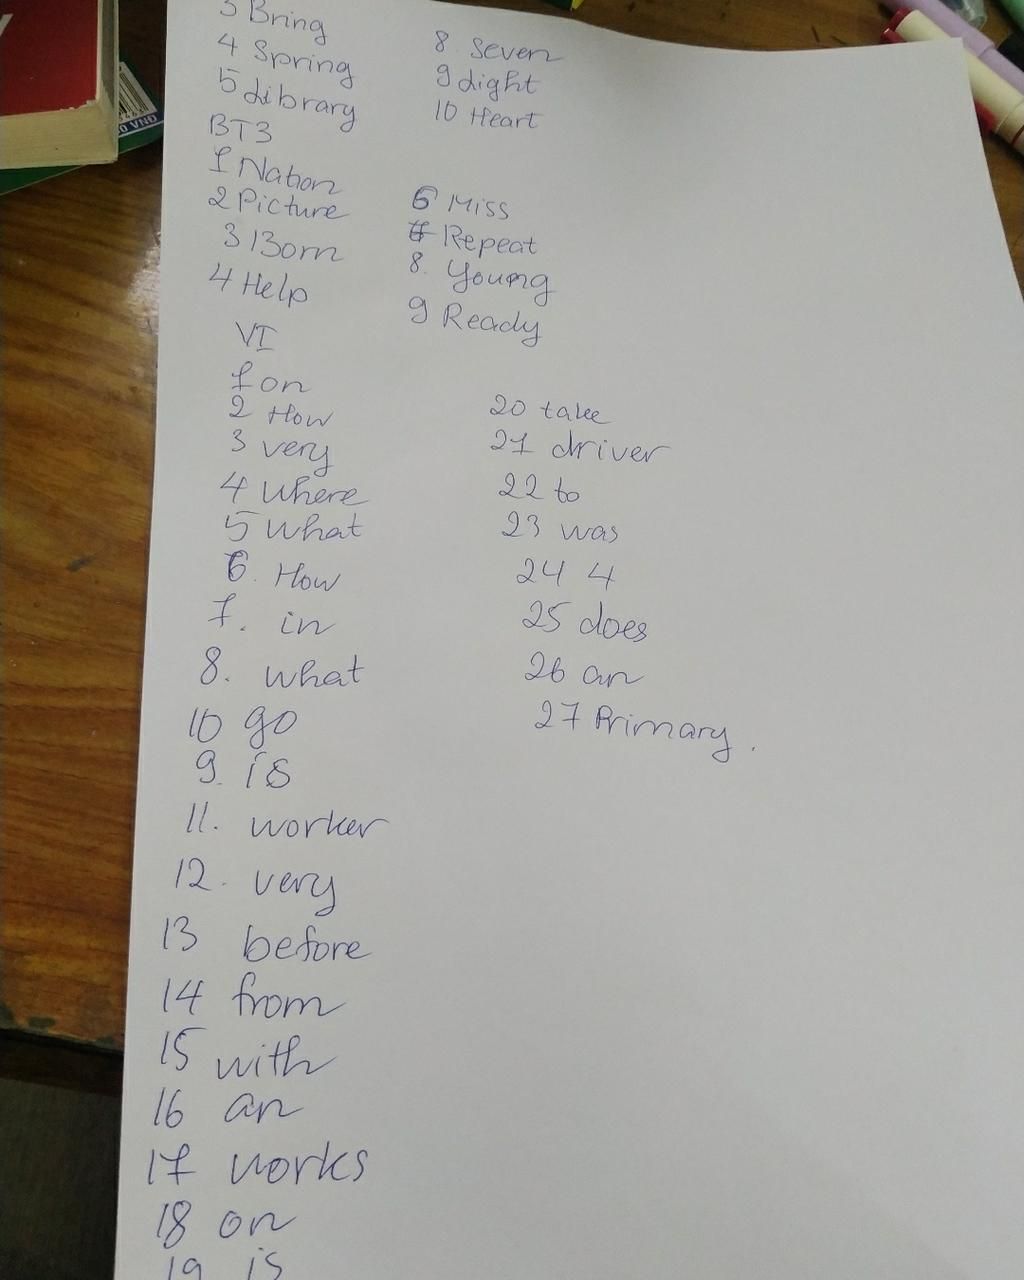 3 Bring
4 Spring
5 Library
8. Seven
9 Light
10 Heart
BT3
1 Nation
2 Picture
3 Born
4 Help
6 Miss
7 Repeat
8. Young
9 Ready
VI
1 on
2 How
3 very
4 Where
5 What
6. How
7. in
8. what
10 go
9. is
11. worker
12. very
13 before
14 from
15 with
16 an
17 works
18 on
19 is
20 take
21 driver
22 to
23 was
24 4
25 does
26 an
27 Primary.
0 VNĐ